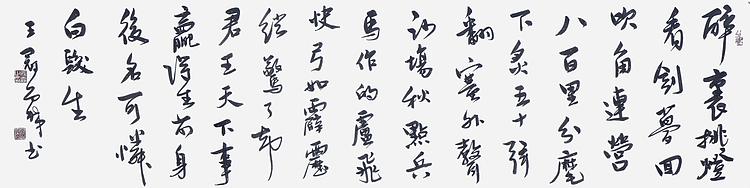 醉裏挑燈
看劍夢回
吹角連營
八百里分麾
下炙五十弦
翻塞外聲
沙場秋點兵
馬作的盧飛
快弓如霹靂
弦驚了却
君王天下事
贏得生前身
後名可憐
白髮生
王 书